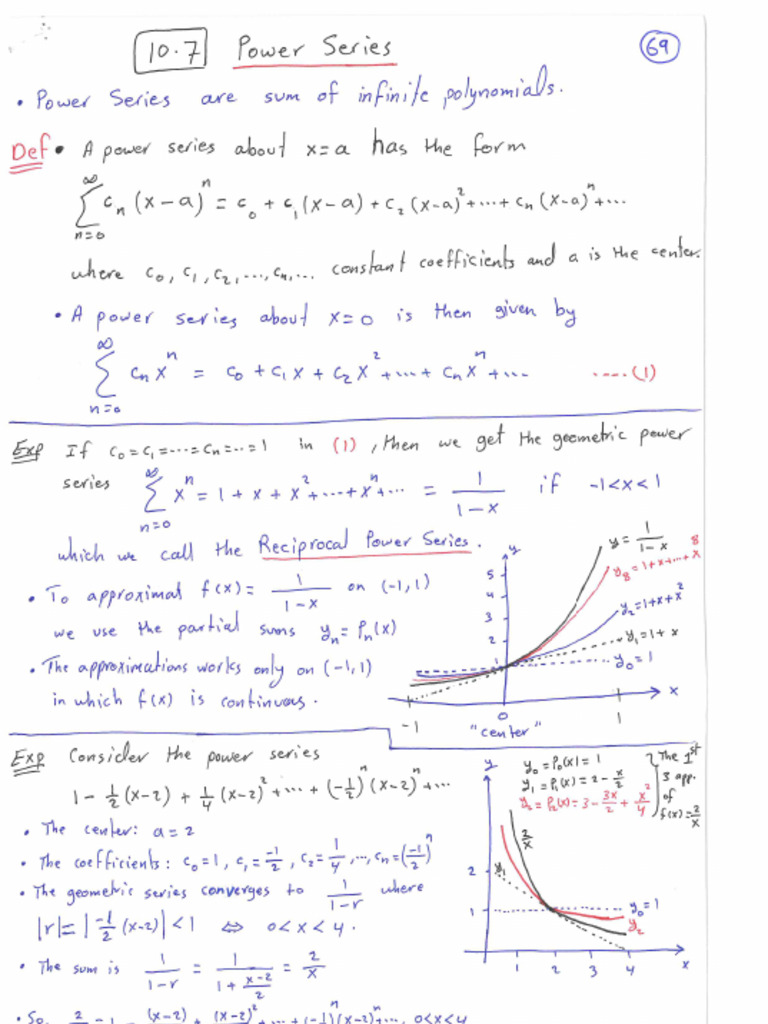 10.7 Power Series
69
• Power Series are sum of infinite polynomials.
Def • A power series about x=a has the form
∞
∑ cₙ(x-a)ⁿ = c₀ + c₁(x-a) + c₂(x-a)² + ... + cₙ(x-a)ⁿ + ...
n=0
where c₀, c₁, c₂, ..., cₙ, ... constant coefficients and a is the center.
• A power series about x=0 is then given by
∞
∑ cₙxⁿ = c₀ + c₁x + c₂x² + ... + cₙxⁿ + ... ....(1)
n=0
Exp If c₀=c₁=...=cₙ=...=1 in (1), then we get the geometric power
series ∑ xⁿ = 1 + x + x² + ... + xⁿ + ... = 1/(1-x) if -1<x<1
∞
n=0
which we call the Reciprocal Power Series.
• To approximal f(x) = 1/(1-x) on (-1,1)
we use the partial sums yₙ = Pₙ(x)
• The approximations works only on (-1,1)
in which f(x) is continuous.
y
y = 1/(1-x)
y₈=1+x+...+x⁸
y₂=1+x+x²
y₁=1+x
y₀=1
5
4
3
2
1
x
-1 0 1
"center"
Exp Consider the power series
1 - ½(x-2) + ¼(x-2)² + ... + (-½)ⁿ(x-2)ⁿ + ...
• The center: a=2
• The coefficients: c₀=1, c₁=-1/2, c₂=1/4, ..., cₙ=(-1/2)ⁿ
• The geometric series converges to 1/(1-r) where
|r|=|-1/2 (x-2)|<1 ⇔ 0<x<4.
• The sum is 1/(1-r) = 1/(1+(x-2)/2) = 2/x
• So, 2/x = 1 - (x-2)/2 + (x-2)²/ + ... + (-½)ⁿ(x-2)ⁿ + ..., 0<x<4
y
y₀=P₀(x)=1
y₁=P₁(x)=2-x/2
y₂=P₂(x)=3-3x/2+x²/4
The 1st
3 app.
of
f(x)=2/x
2/x
y₁
2
1
y₀=1
y₂
1 2 3 4 x